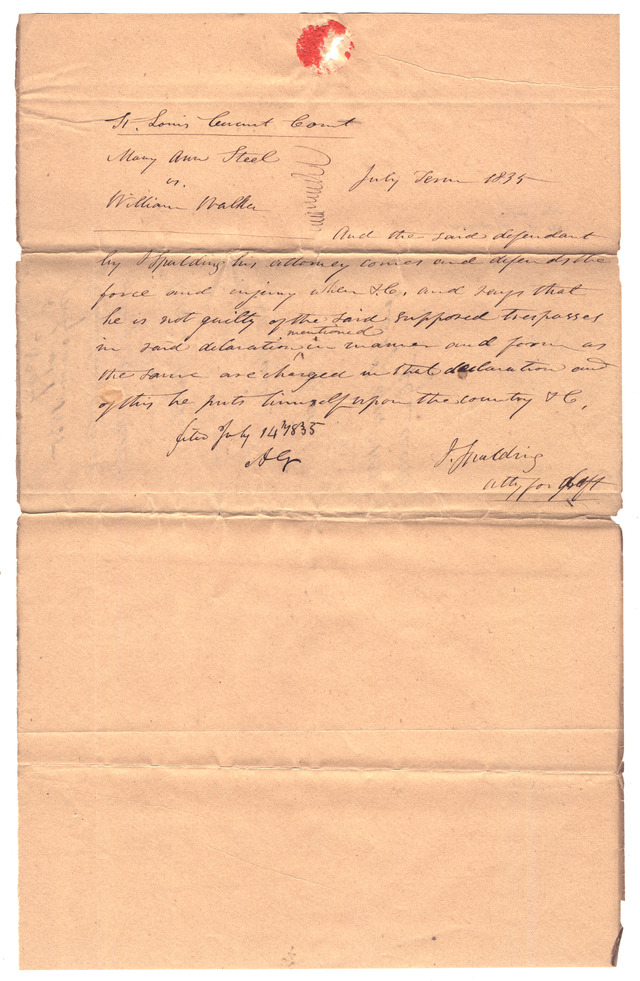 St. Louis Circuit Court
Mary Ann Steel
vs.
William Walker
July Term 1835
And the said defendant
by J Spalding his attorney comes and defends the
force and injury when &C, and says that
he is not guilty of the said supposed trespasses
mentioned
in said declaration in manner and form as
the same are charged in that declaration and
of this he puts himself upon the country &C,
filed July 14th 1835
J. Spalding
Atty for deft